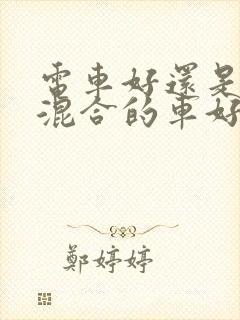 電車好還是
混合的車好
鄭婷婷